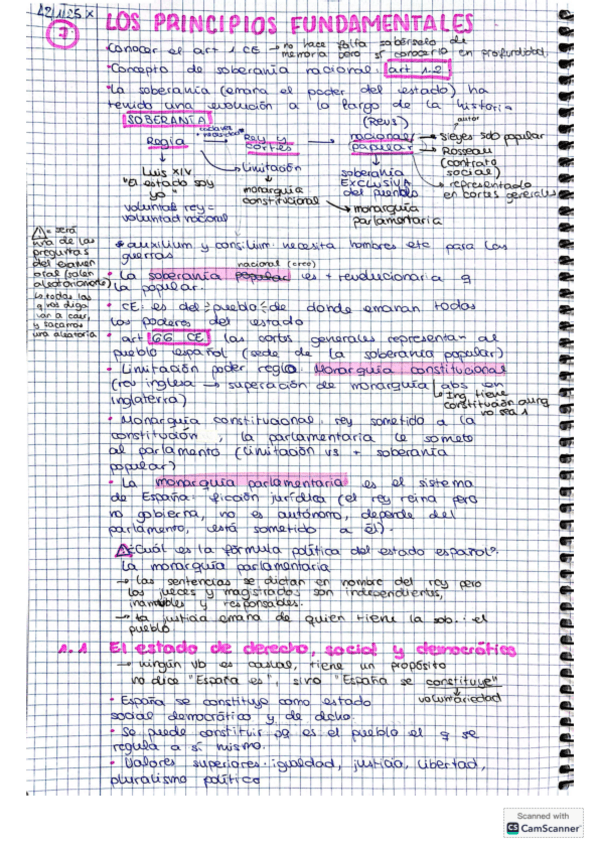 7
LOS PRINCIPIOS FUNDAMENTALES
·Conocer el art 1 CE → no hace falta sabérselo de
memoria pero sí conocerlo en profundidad.
·Concepto de soberanía nacional: art 1.2
·La soberanía (emana el poder del estado) ha
tenido una evolución a lo largo de la historia
SOBERANÍA
(Revs)
autor
Regia → Rey y cortes → nacional/ popular
→ Sieyes sdo popular
→ Rosseau (contrato social)
→ representado en cortes generales
Luis XIV
"El estado soy yo"
voluntad rey = voluntad nacional
→ Limitación
monarquía constitucional
soberanía EXCLUSIVA del pueblo
→ monarquía parlamentaria
* auxilium y consilium: necesita hombres etc para las
guerras
nacional (creo)
· La soberanía popular es + revolucionaria q
la popular.
· CE: es del pueblo de donde emanan todas
los poderes del estado
· art 66 CE las cortes generales representan al
pueblo español (sede de la soberanía popular)
· Limitación poder regio. Monarquía constitucional
(rev inglesa → superación de monarquía abs en
Inglaterra)
↳ Ing. tiene
constitución aunq
no sea 1
· Monarquía constitucional, rey sometido a la
constitución, la parlamentaria le somete
al parlamento (limitación vs + soberanía
popular)
· La monarquía parlamentaria es el sistema
de España. ficción jurídica (el rey reina pero
no gobierna, no es autónomo, depende del
parlamento, está sometido a él).
⚠ ¿Cuál es la fórmula política del estado español?
La monarquía parlamentaria
→ las sentencias se dictan en nombre del rey pero
los jueces y magistrados son independientes,
inamovibles y responsables.
→ la justicia emana de quien tiene la sob.: el
pueblo
⚠ = será
una de las
preguntas
del examen
oras (salen
aleatoriamente)
↳ todas las
q nos diga
van a caer,
y sacamos
una aleatoria
1.1 El estado de derecho, social y democrático
→ ningún vb es casual, tiene un propósito
no dice "España es", sino "España se constituye"
↓
voluntariedad
· España se constituye como estado
social democrático y de dcho.
· Se puede constituir pq es el pueblo el q se
regula a sí mismo.
· Valores superiores: igualdad, justicia, libertad,
pluralismo político
Scanned with
CS CamScanner